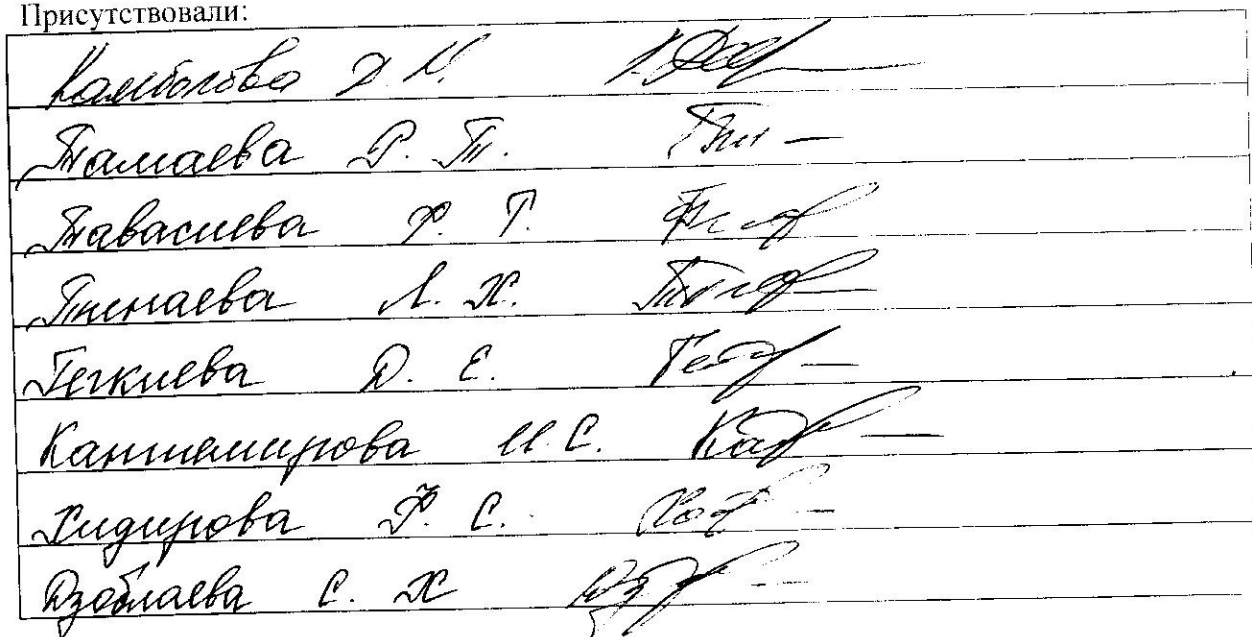 Присутствовали:
Камболова Д. К.
Тамаева Р. Т.
Тавасиева Р. Г.
Тинаева Л. Х.
Гегкиева Д. Е.
Кантемирова И. С.
Хидирова Ф. С.
Дзоблаева С. Х